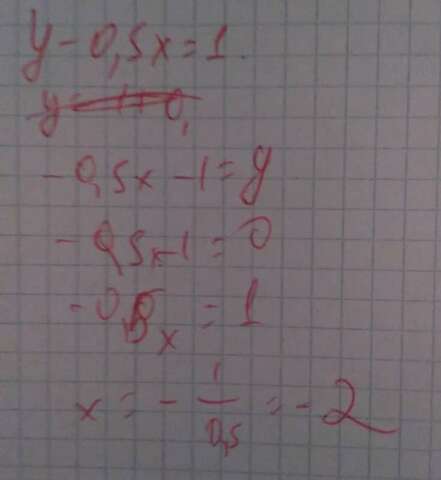 y - 0,5x = 1.
-0,5x - 1 = y
-0,5x-1 = 0
-0,5x = 1
x = - 1/0,5 = -2